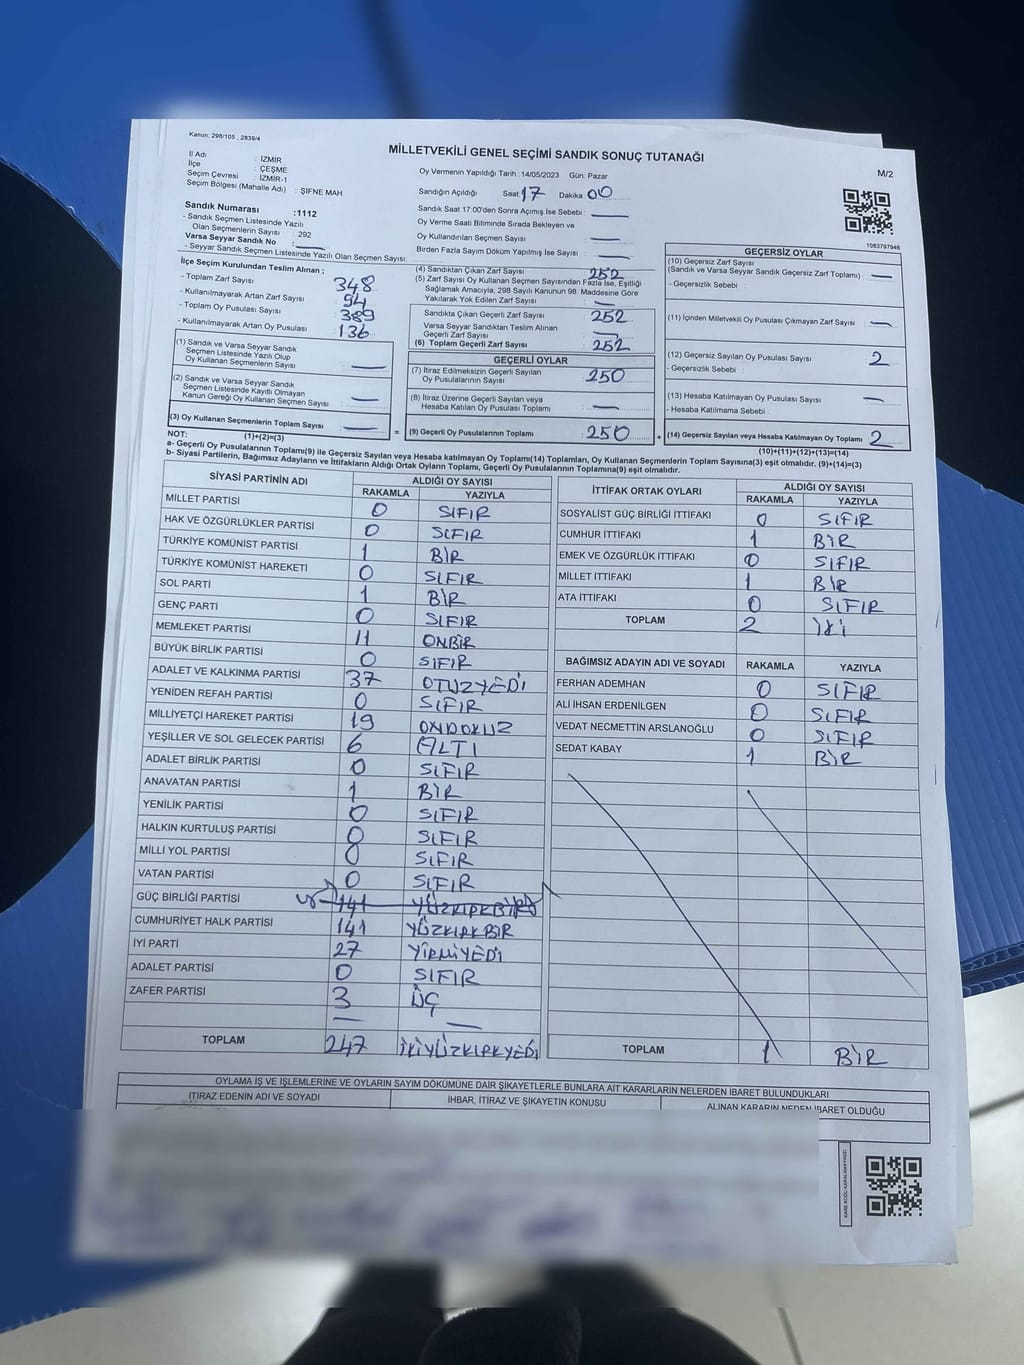 Kanun: 298/105 , 2839/4
MİLLETVEKİLİ GENEL SEÇİMİ SANDIK SONUÇ TUTANAĞI
M/2
İl Adı : İZMİR
İlçe : ÇEŞME
Seçim Çevresi : İZMİR-1
Seçim Bölgesi (Mahalle Adı) : ŞİFNE MAH
Sandık Numarası :1112
- Sandık Seçmen Listesinde Yazılı
Olan Seçmenlerin Sayısı : 292
Varsa Seyyar Sandık No :
- Seyyar Sandık Seçmen Listesinde Yazılı Olan Seçmen Sayısı:
Oy Vermenin Yapıldığı Tarih : 14/05/2023 Gün: Pazar
Sandığın Açıldığı Saat: 17 Dakika : 00
Sandık Saat 17:00'den Sonra Açımış İse Sebebi :
Oy Verme Saati Bitiminde Sırada Bekleyen ve
Oy Kullandırılan Seçmen Sayısı :
Birden Fazla Sayım Döküm Yapılmış İse Sayısı :
1083797946
İlçe Seçim Kurulundan Teslim Alınan ;
- Toplam Zarf Sayısı : 348
- Kullanılmayarak Artan Zarf Sayısı : 94
- Toplam Oy Pusulası Sayısı : 389
- Kullanılmayarak Artan Oy Pusulası : 136
(1) Sandık ve Varsa Seyyar Sandık
Seçmen Listesinde Yazılı Olup
Oy Kullanan Seçmenlerin Sayısı :
(2) Sandık ve Varsa Seyyar Sandık
Seçmen Listesinde Kayıtlı Olmayan
Kanun Gereği Oy Kullanan Seçmen Sayısı :
(3) Oy Kullanan Seçmenlerin Toplam Sayısı :
(4) Sandıktan Çıkan Zarf Sayısı : 252
(5) Zarf Sayısı Oy Kullanan Seçmen Sayısından Fazla İse, Eşitliği
Sağlamak Amacıyla, 298 Sayılı Kanunun 98. Maddesine Göre
Yakılarak Yok Edilen Zarf Sayısı :
Sandıkta Çıkan Geçerli Zarf Sayısı : 252
Varsa Seyyar Sandıktan Teslim Alınan
Geçerli Zarf Sayısı :
(6) Toplam Geçerli Zarf Sayısı : 252
GEÇERLİ OYLAR
(7) İtiraz Edilmeksizin Geçerli Sayılan
Oy Pusulalarının Sayısı : 250
(8) İtiraz Üzerine Geçerli Sayılan veya
Hesaba Katılan Oy Pusulası Toplamı :
= (9) Geçerli Oy Pusulalarının Toplamı : 250
GEÇERSİZ OYLAR
(10) Geçersiz Zarf Sayısı
(Sandık ve Varsa Seyyar Sandık Geçersiz Zarf Toplamı) :
- Geçersizlik Sebebi :
(11) İçinden Milletvekili Oy Pusulası Çıkmayan Zarf Sayısı :
(12) Geçersiz Sayılan Oy Pusulası Sayısı : 2
- Geçersizlik Sebebi :
(13) Hesaba Katılmayan Oy Pusulası Sayısı :
- Hesaba Katılmama Sebebi :
+ (14) Geçersiz Sayılan veya Hesaba Katılmayan Oy Toplamı : 2
NOT: (1)+(2)=(3)
(10)+(11)+(12)+(13)=(14)
a- Geçerli Oy Pusulalarının Toplamı(9) ile Geçersiz Sayılan veya Hesaba katılmayan Oy Toplamı(14) Toplamları, Oy Kullanan Seçmenlerin Toplam Sayısına(3) eşit olmalıdır. (9)+(14)=(3)
b- Siyasi Partilerin, Bağımsız Adayların ve İttifakların Aldığı Ortak Oyların Toplamı, Geçerli Oy Pusulalarının Toplamına(9) eşit olmalıdır.
SİYASİ PARTİNİN ADI ALDIĞI OY SAYISI
RAKAMLA YAZIYLA
MİLLET PARTİSİ 0 SIFIR
HAK VE ÖZGÜRLÜKLER PARTİSİ 0 SIFIR
TÜRKİYE KOMÜNİST PARTİSİ 1 BİR
TÜRKİYE KOMÜNİST HAREKETİ 0 SIFIR
SOL PARTİ 1 BİR
GENÇ PARTİ 0 SIFIR
MEMLEKET PARTİSİ 11 ONBİR
BÜYÜK BİRLİK PARTİSİ 0 SIFIR
ADALET VE KALKINMA PARTİSİ 37 OTUZYEDİ
YENİDEN REFAH PARTİSİ 0 SIFIR
MİLLİYETÇİ HAREKET PARTİSİ 19 ONDOKUZ
YEŞİLLER VE SOL GELECEK PARTİSİ 6 ALTI
ADALET BİRLİK PARTİSİ 0 SIFIR
ANAVATAN PARTİSİ 1 BİR
YENİLİK PARTİSİ 0 SIFIR
HALKIN KURTULUŞ PARTİSİ 0 SIFIR
MİLLİ YOL PARTİSİ 0 SIFIR
VATAN PARTİSİ 0 SIFIR
GÜÇ BİRLİĞİ PARTİSİ 141 YÜZKIRKBİR
CUMHURİYET HALK PARTİSİ 141 YÜZKIRKBİR
İYİ PARTİ 27 YİRMİYEDİ
ADALET PARTİSİ 0 SIFIR
ZAFER PARTİSİ 3 ÜÇ
TOPLAM 247 İKİYÜZKIRKYEDİ
İTTİFAK ORTAK OYLARI ALDIĞI OY SAYISI
RAKAMLA YAZIYLA
SOSYALİST GÜÇ BİRLİĞİ İTTİFAKI 0 SIFIR
CUMHUR İTTİFAKI 1 BİR
EMEK VE ÖZGÜRLÜK İTTİFAKI 0 SIFIR
MİLLET İTTİFAKI 1 BİR
ATA İTTİFAKI 0 SIFIR
TOPLAM 2 İKİ
BAĞIMSIZ ADAYIN ADI VE SOYADI RAKAMLA YAZIYLA
FERHAN ADEMHAN 0 SIFIR
ALİ İHSAN ERDENİLGEN 0 SIFIR
VEDAT NECMETTİN ARSLANOĞLU 0 SIFIR
SEDAT KABAY 1 BİR
TOPLAM 1 BİR
OYLAMA İŞ VE İŞLEMLERİNE VE OYLARIN SAYIM DÖKÜMÜNE DAİR ŞİKAYETLERLE BUNLARA AİT KARARLARIN NELERDEN İBARET BULUNDUKLARI
İTİRAZ EDENİN ADI VE SOYADI İHBAR, İTİRAZ VE ŞİKAYETİN KONUSU ALINAN KARARIN NEDEN İBARET OLDUĞU
KARE KODU KARALAMAYINIZ!